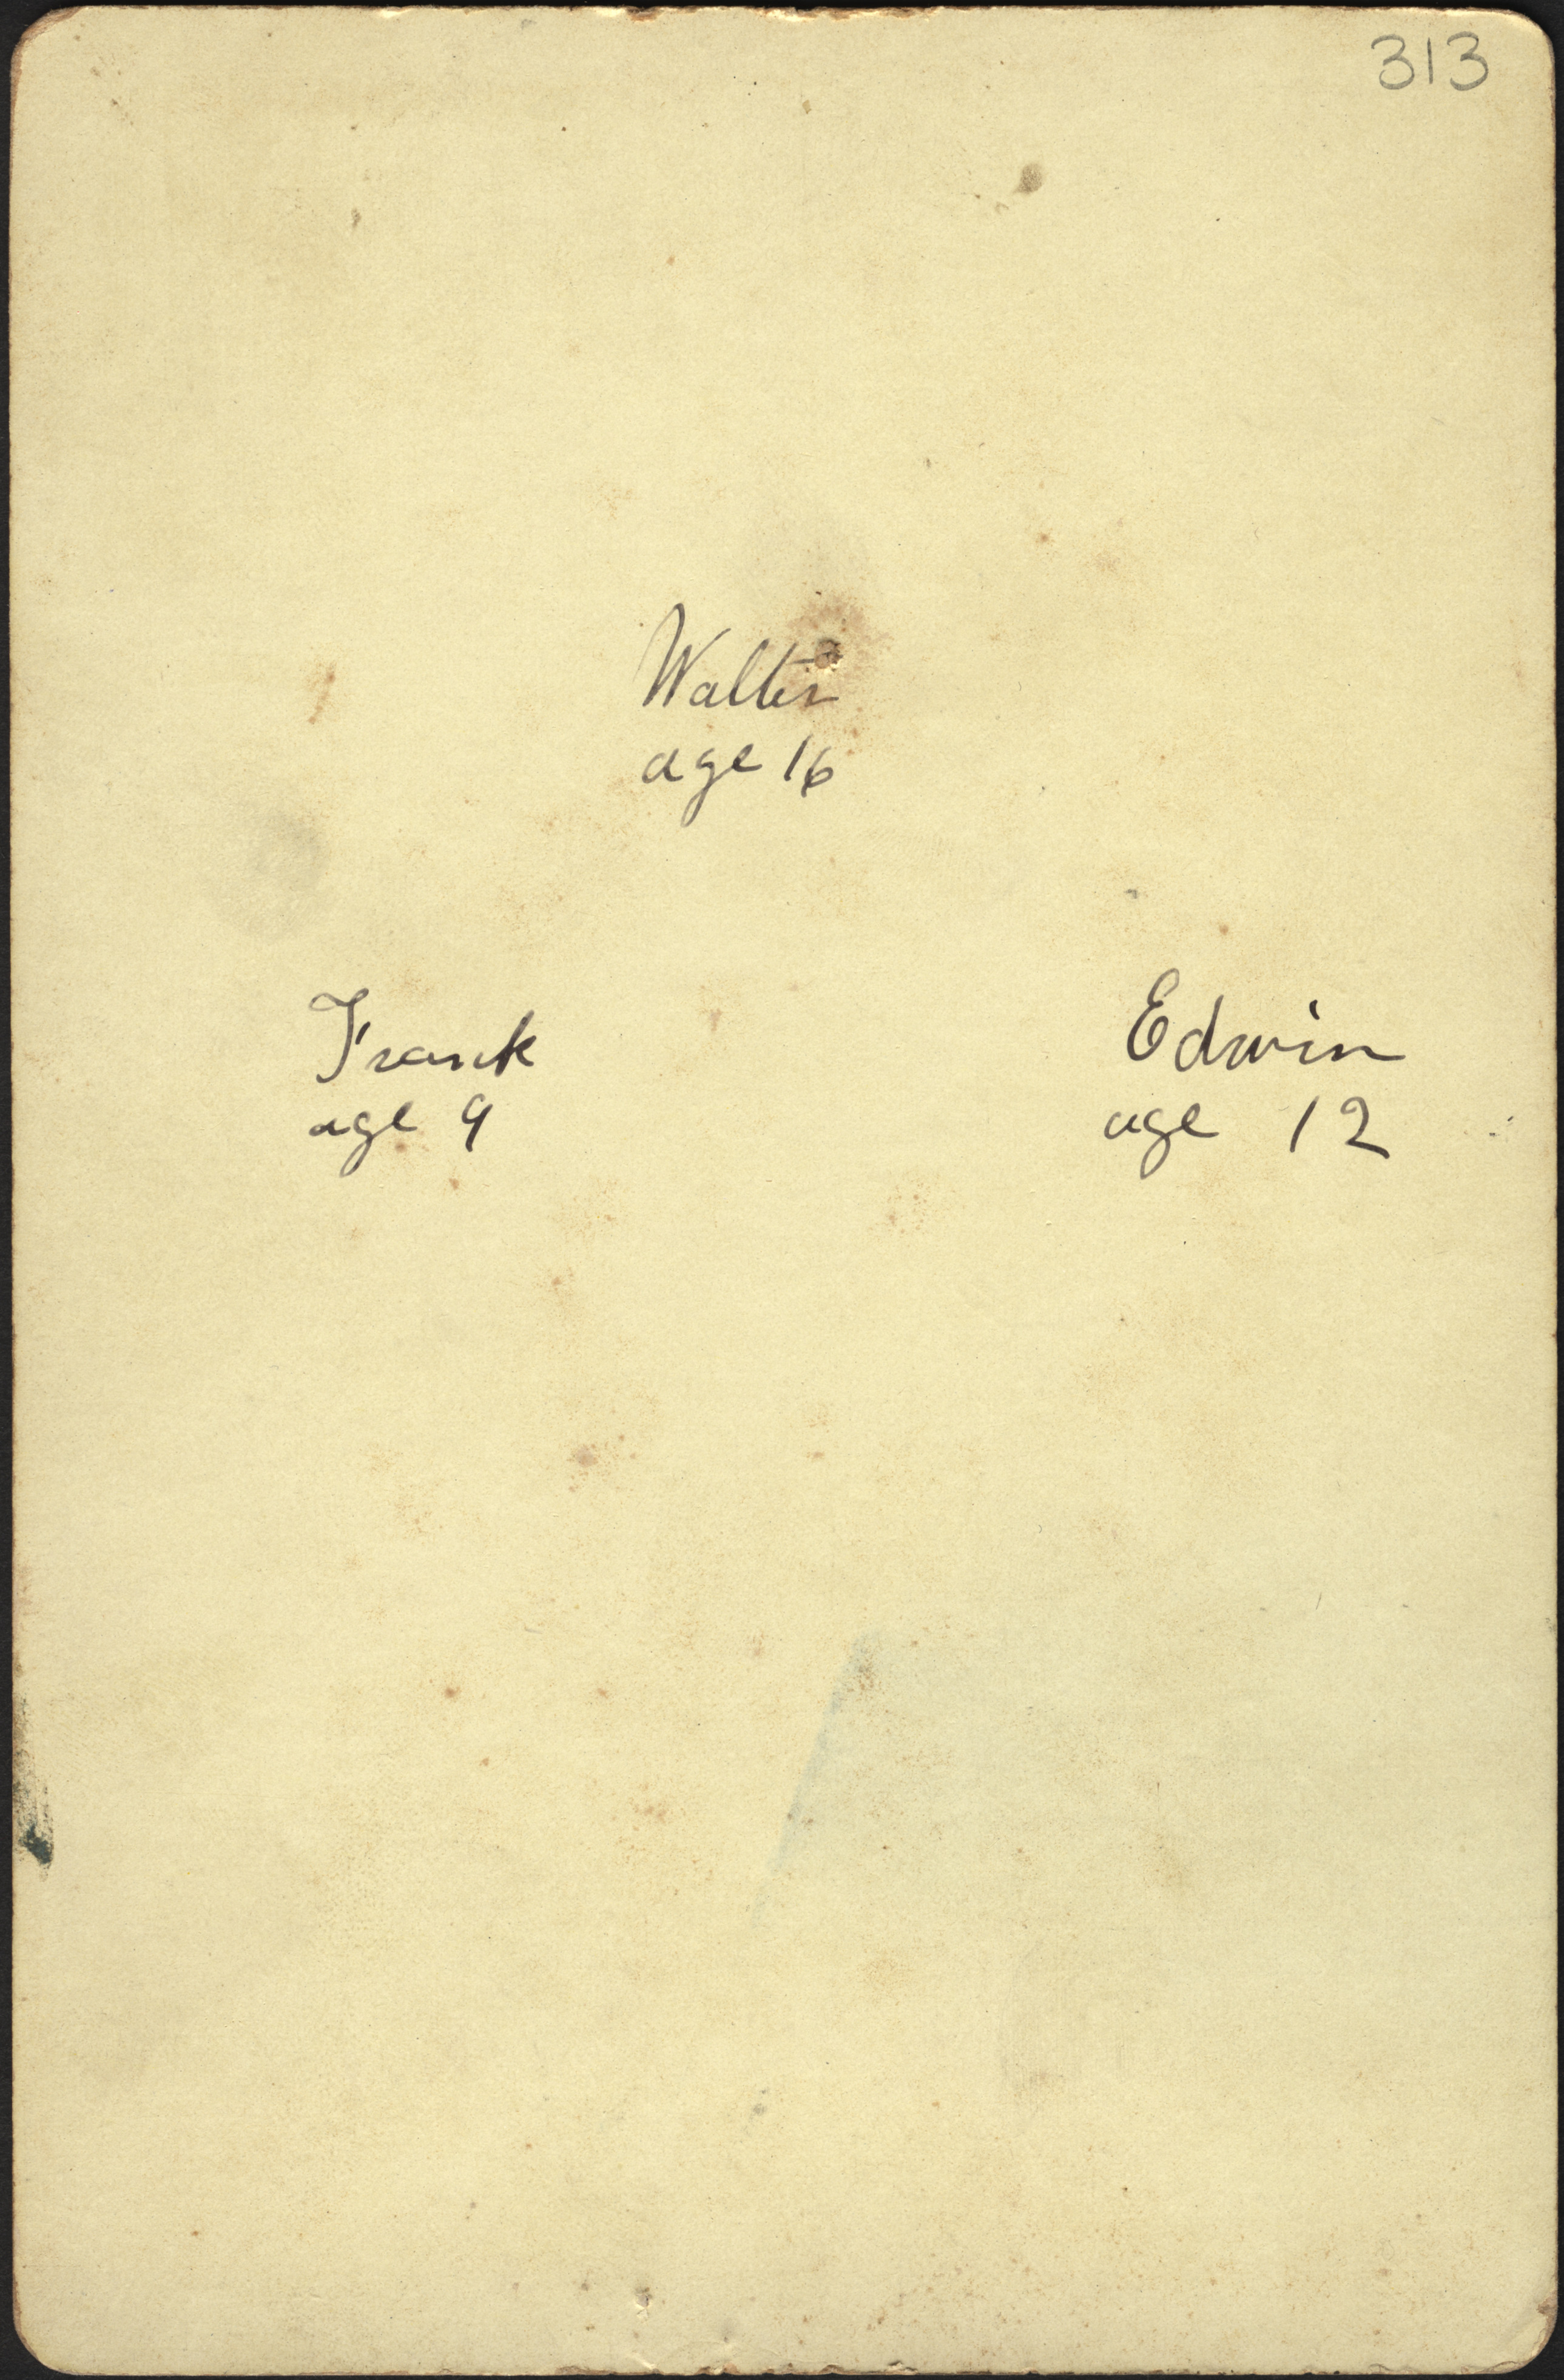 313
Walter
age 16
Frank
age 9
Edwin
age 12